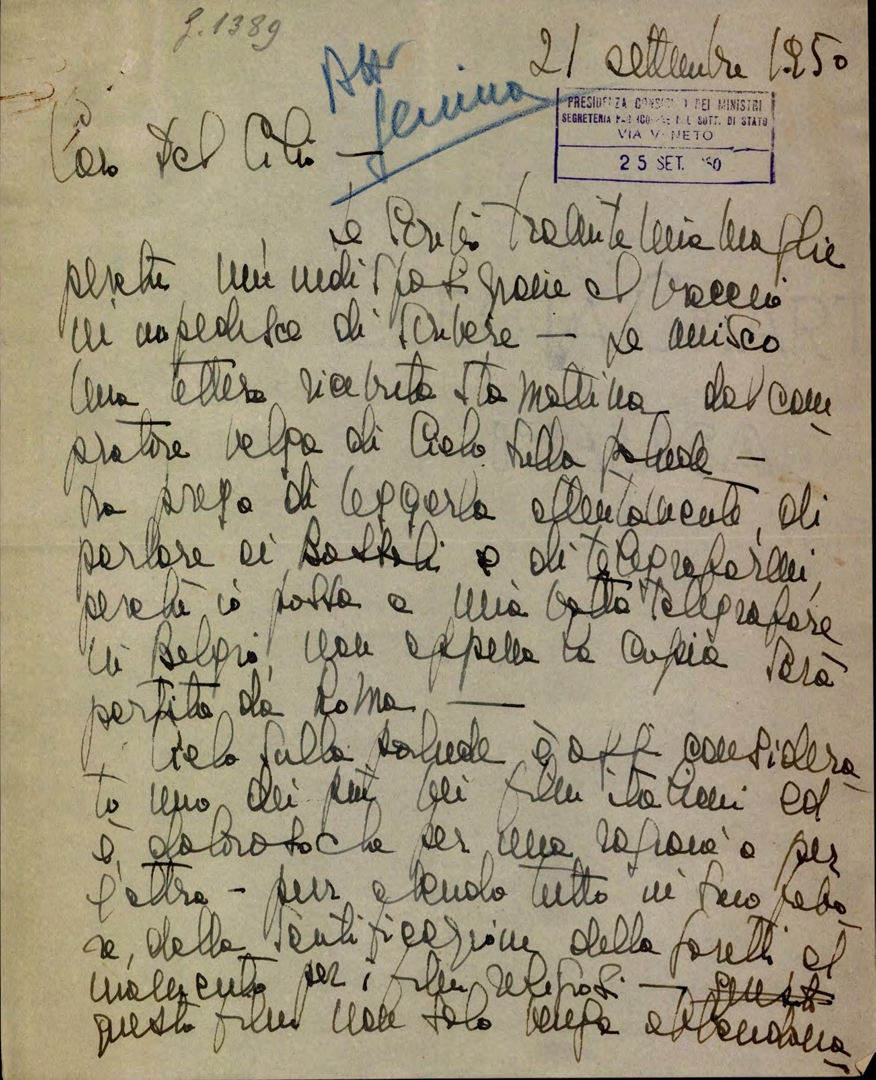 g. 1389
21 settembre 1950
Att
Genina
PRESIDENZA CONSIGLIO DEI MINISTRI
SEGRETERIA PARTICOLARE DEL SOTT. DI STATO
VIA VENETO
25 SET. 50
Caro Del Ciglio —
Le scrivo tramite mia moglie
perché una indisposizione al braccio
mi impedisce di scrivere — Le unisco
una lettera ricevuta stamattina dal com
pratore belga di Cielo sulla palude —
La prego di leggerla attentamente, di
parlare ai Bassoli e di telegrafarmi,
perché io possa a mia volta telegrafare
in Belgio, non appena la copia sarà
partita da Roma —
Cielo sulla palude è oggi considera
to uno dei più bei film italiani ed
è doloroso che per una ragione o per
l'altra — pur avendo tutto in suo favo
re, dalla santificazione della Goretti al
momento per i film religiosi —
questo film non solo venga abbandona